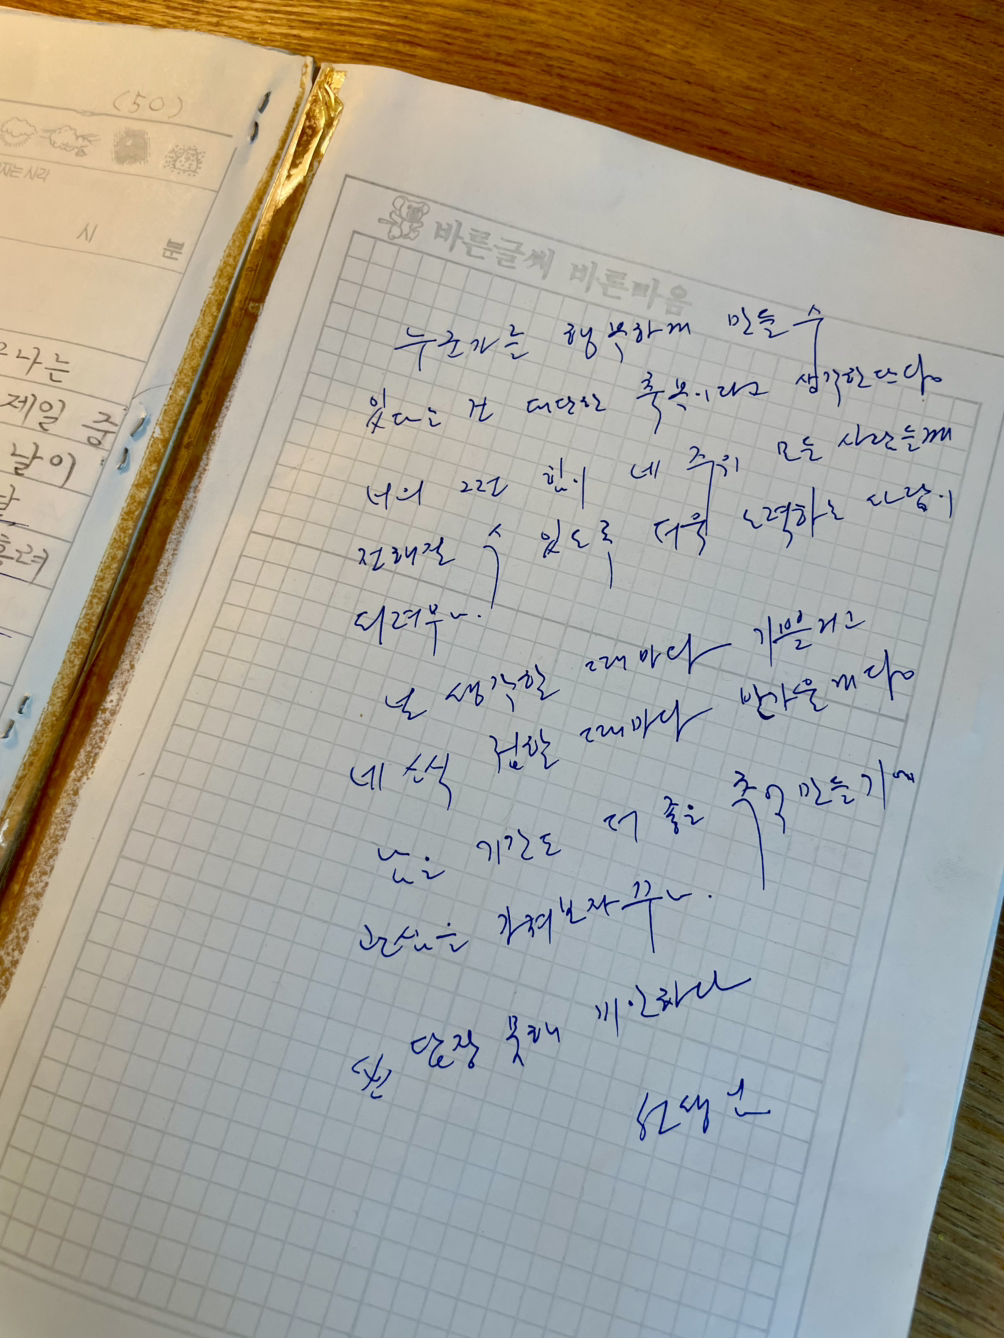 (50)
자는 시각
시 분
나는
제일 중
날이
바른글씨 바른마음
누군가를 행복하게 만들 수
있다는 건 대단한 축복이라고 생각한단다.
너의 그런 힘이 네 주위 모든 사람들께
전해질 수 있도록 더욱 노력하는 사람이
되려무나.
널 생각할 때마다 기쁠거고
네 소식 접할 때마다 반가울게다.
남은 기간도 더 좋은 추억 만들기에
관심을 가져보자꾸나.
답장 못해 미안하다
선생님